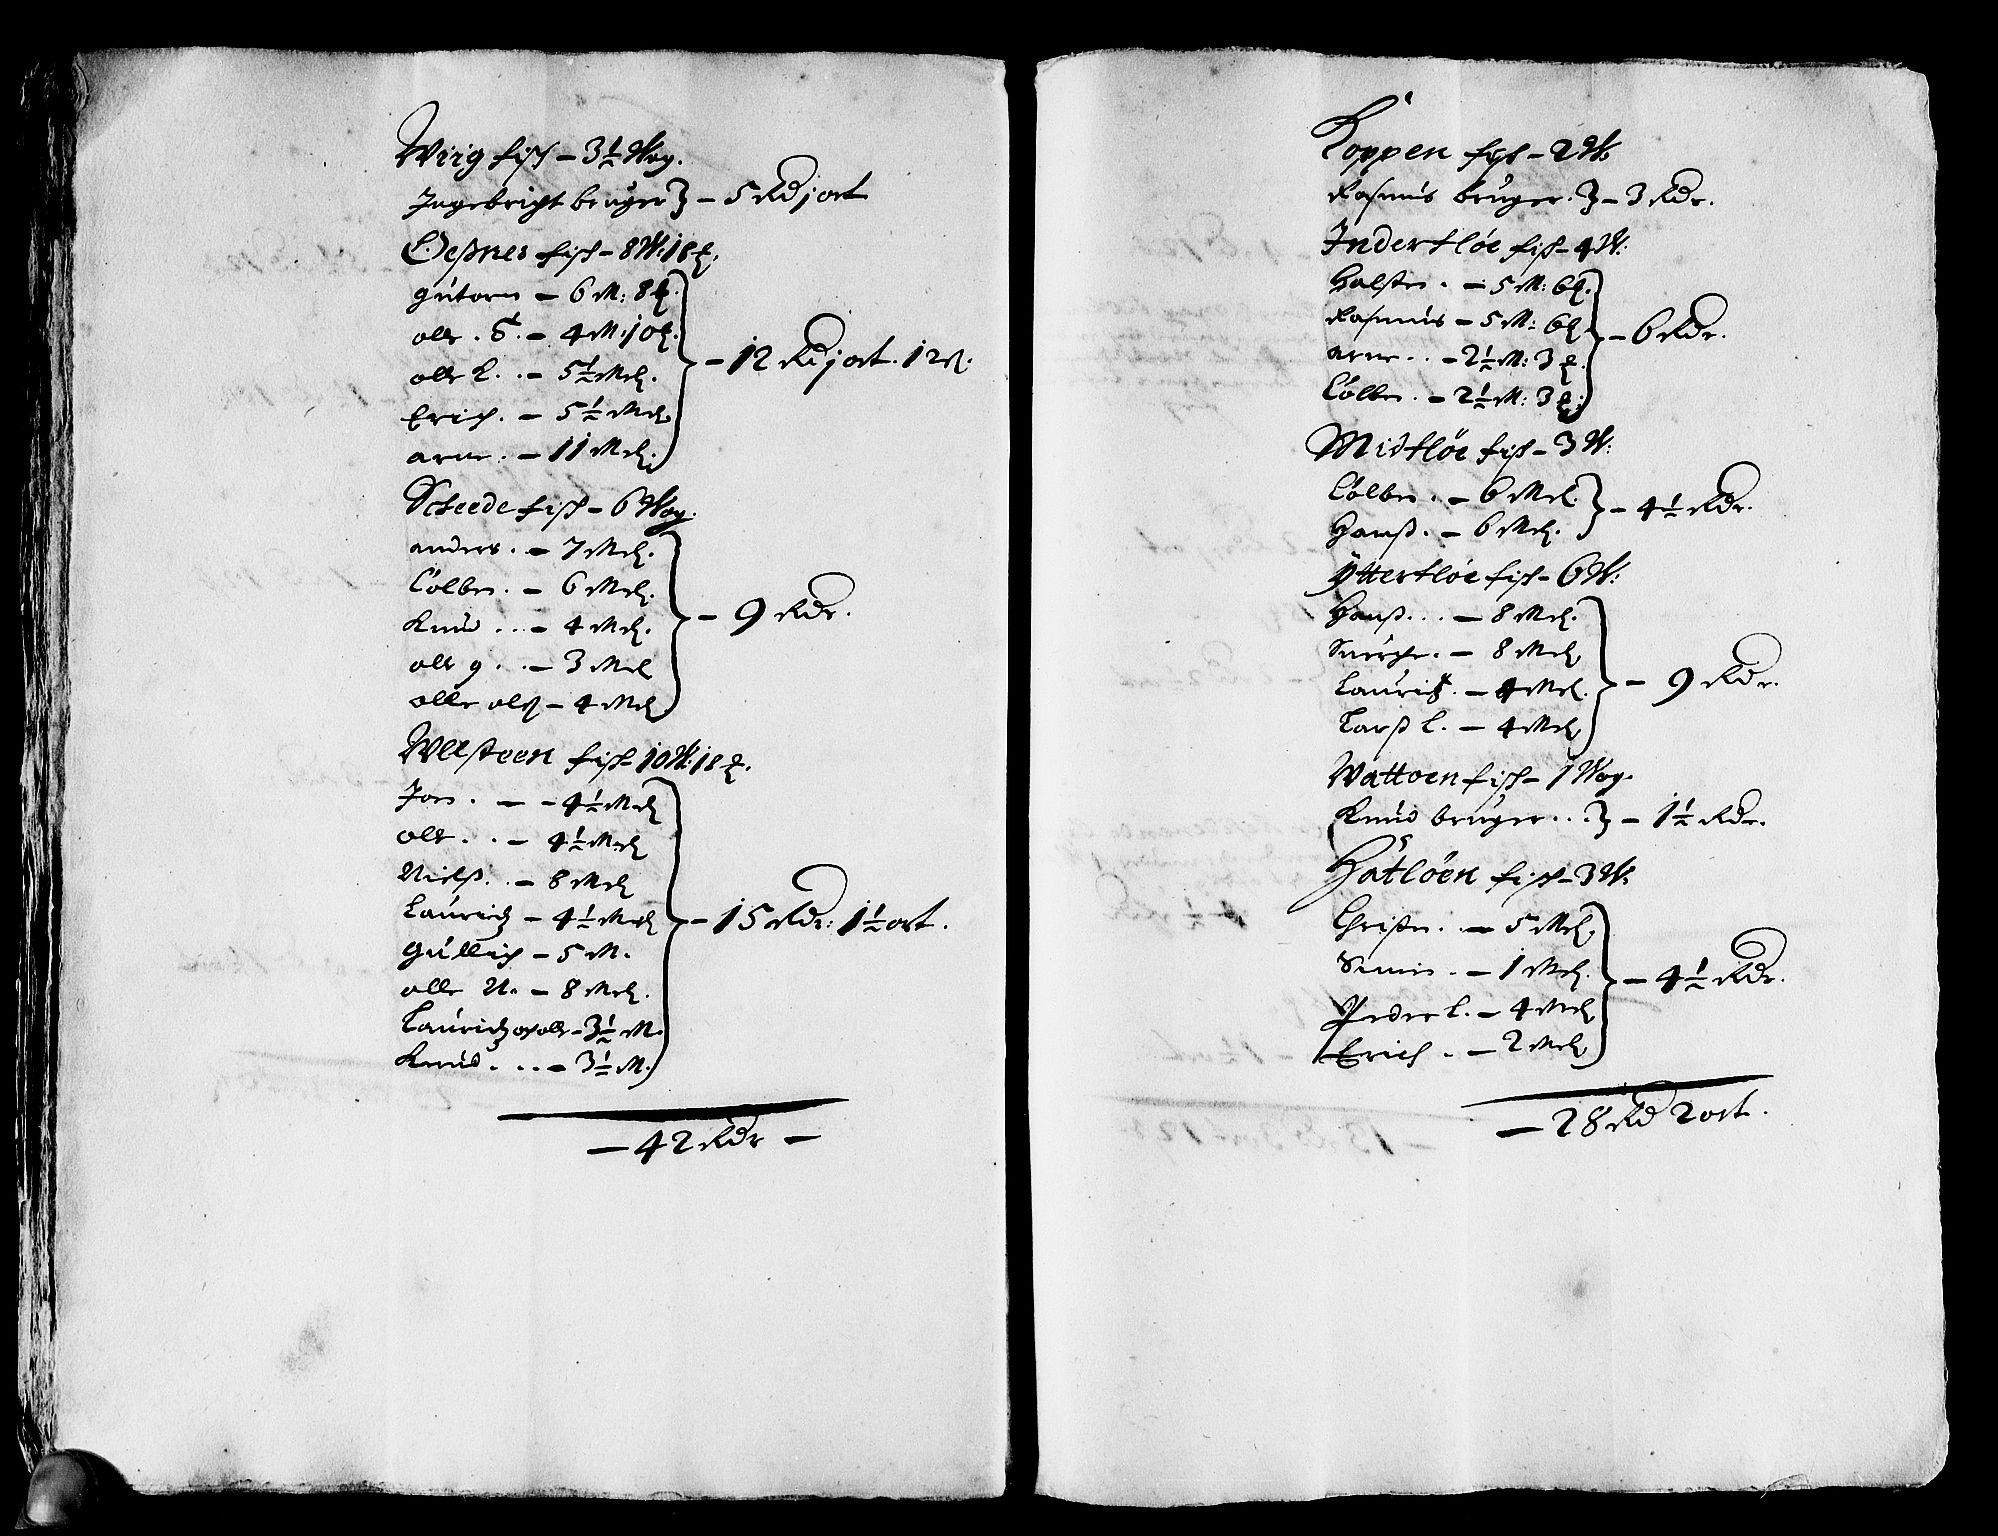 Wiig fisk – 3½ Wog.
Ingebricht bruger – 5 Rd j ort
Oesnes fisk – 8 W: 18 ₰.
gutorm – 6 M: 8 ₰.
olle . S. – 4 M: j0 ₰.
olle L. . – 5½ Mrk.
Erich. – 5½ Mrk.
arne. – 11 Mrk.
– 12 Rd j ort. 12 ß.
Scheede fisk – 6 Wog.
anders. – 7 Mrk.
Colben. – 6 Mrk.
Knud ... – 4 Mrk.
olle g. . – 3 Mrk
olle olß – 4 Mrk
– 9 Rdr.
Wllsteen fisk – 10 W: 18 ₰.
Jon . – – 4½ Mrk
olle . . – 4½ Mrk
Nielß. . – 8 Mrk
Lauritz – 4½ Mrk
gullich – 5 M.
olle N. – 8 Mrk.
Lauritz oc olle – 3½ M.
Knud. ... – 3½ M.
– 15 Rdr: 1½ ort.
– 42 Rdr –
Koppen fisk – 2 W.
Rasmus bruger. – 3 Rdr.
Inderfløe fisk – 4 W:
Halsten . – 5 M: 6 ₰.
Rasmus – 5 M: 6 ₰
arne . . – 2½ M: 3 ₰.
Colben. – 2½ M: 3 ₰.
– 6 Rdr.
Midtfløe fisk – 3 W:
Colben . – 6 Mrk
Hanß. – 6 Mrk.
– 4½ Rdr.
Ytterfløe fisk – 6 W:
Hanß. . . – 8 Mrk.
– 8 Mrk
Lauritz. – 4 Mrk.
Larß L. – 4 Mrk
– 9 Rdr.
Wattoen fisk – 1 Wog.
Knud bruger . . – 1½ Rdr.
Hatløen fisk – 3 W:
Christen. . – 5 Mrk.
– 1 Mrk.
Peder L. – 4 Mrk
Erich . – 2 Mrk
– 4½ Rdr.
– 28 Rd 2 ort.